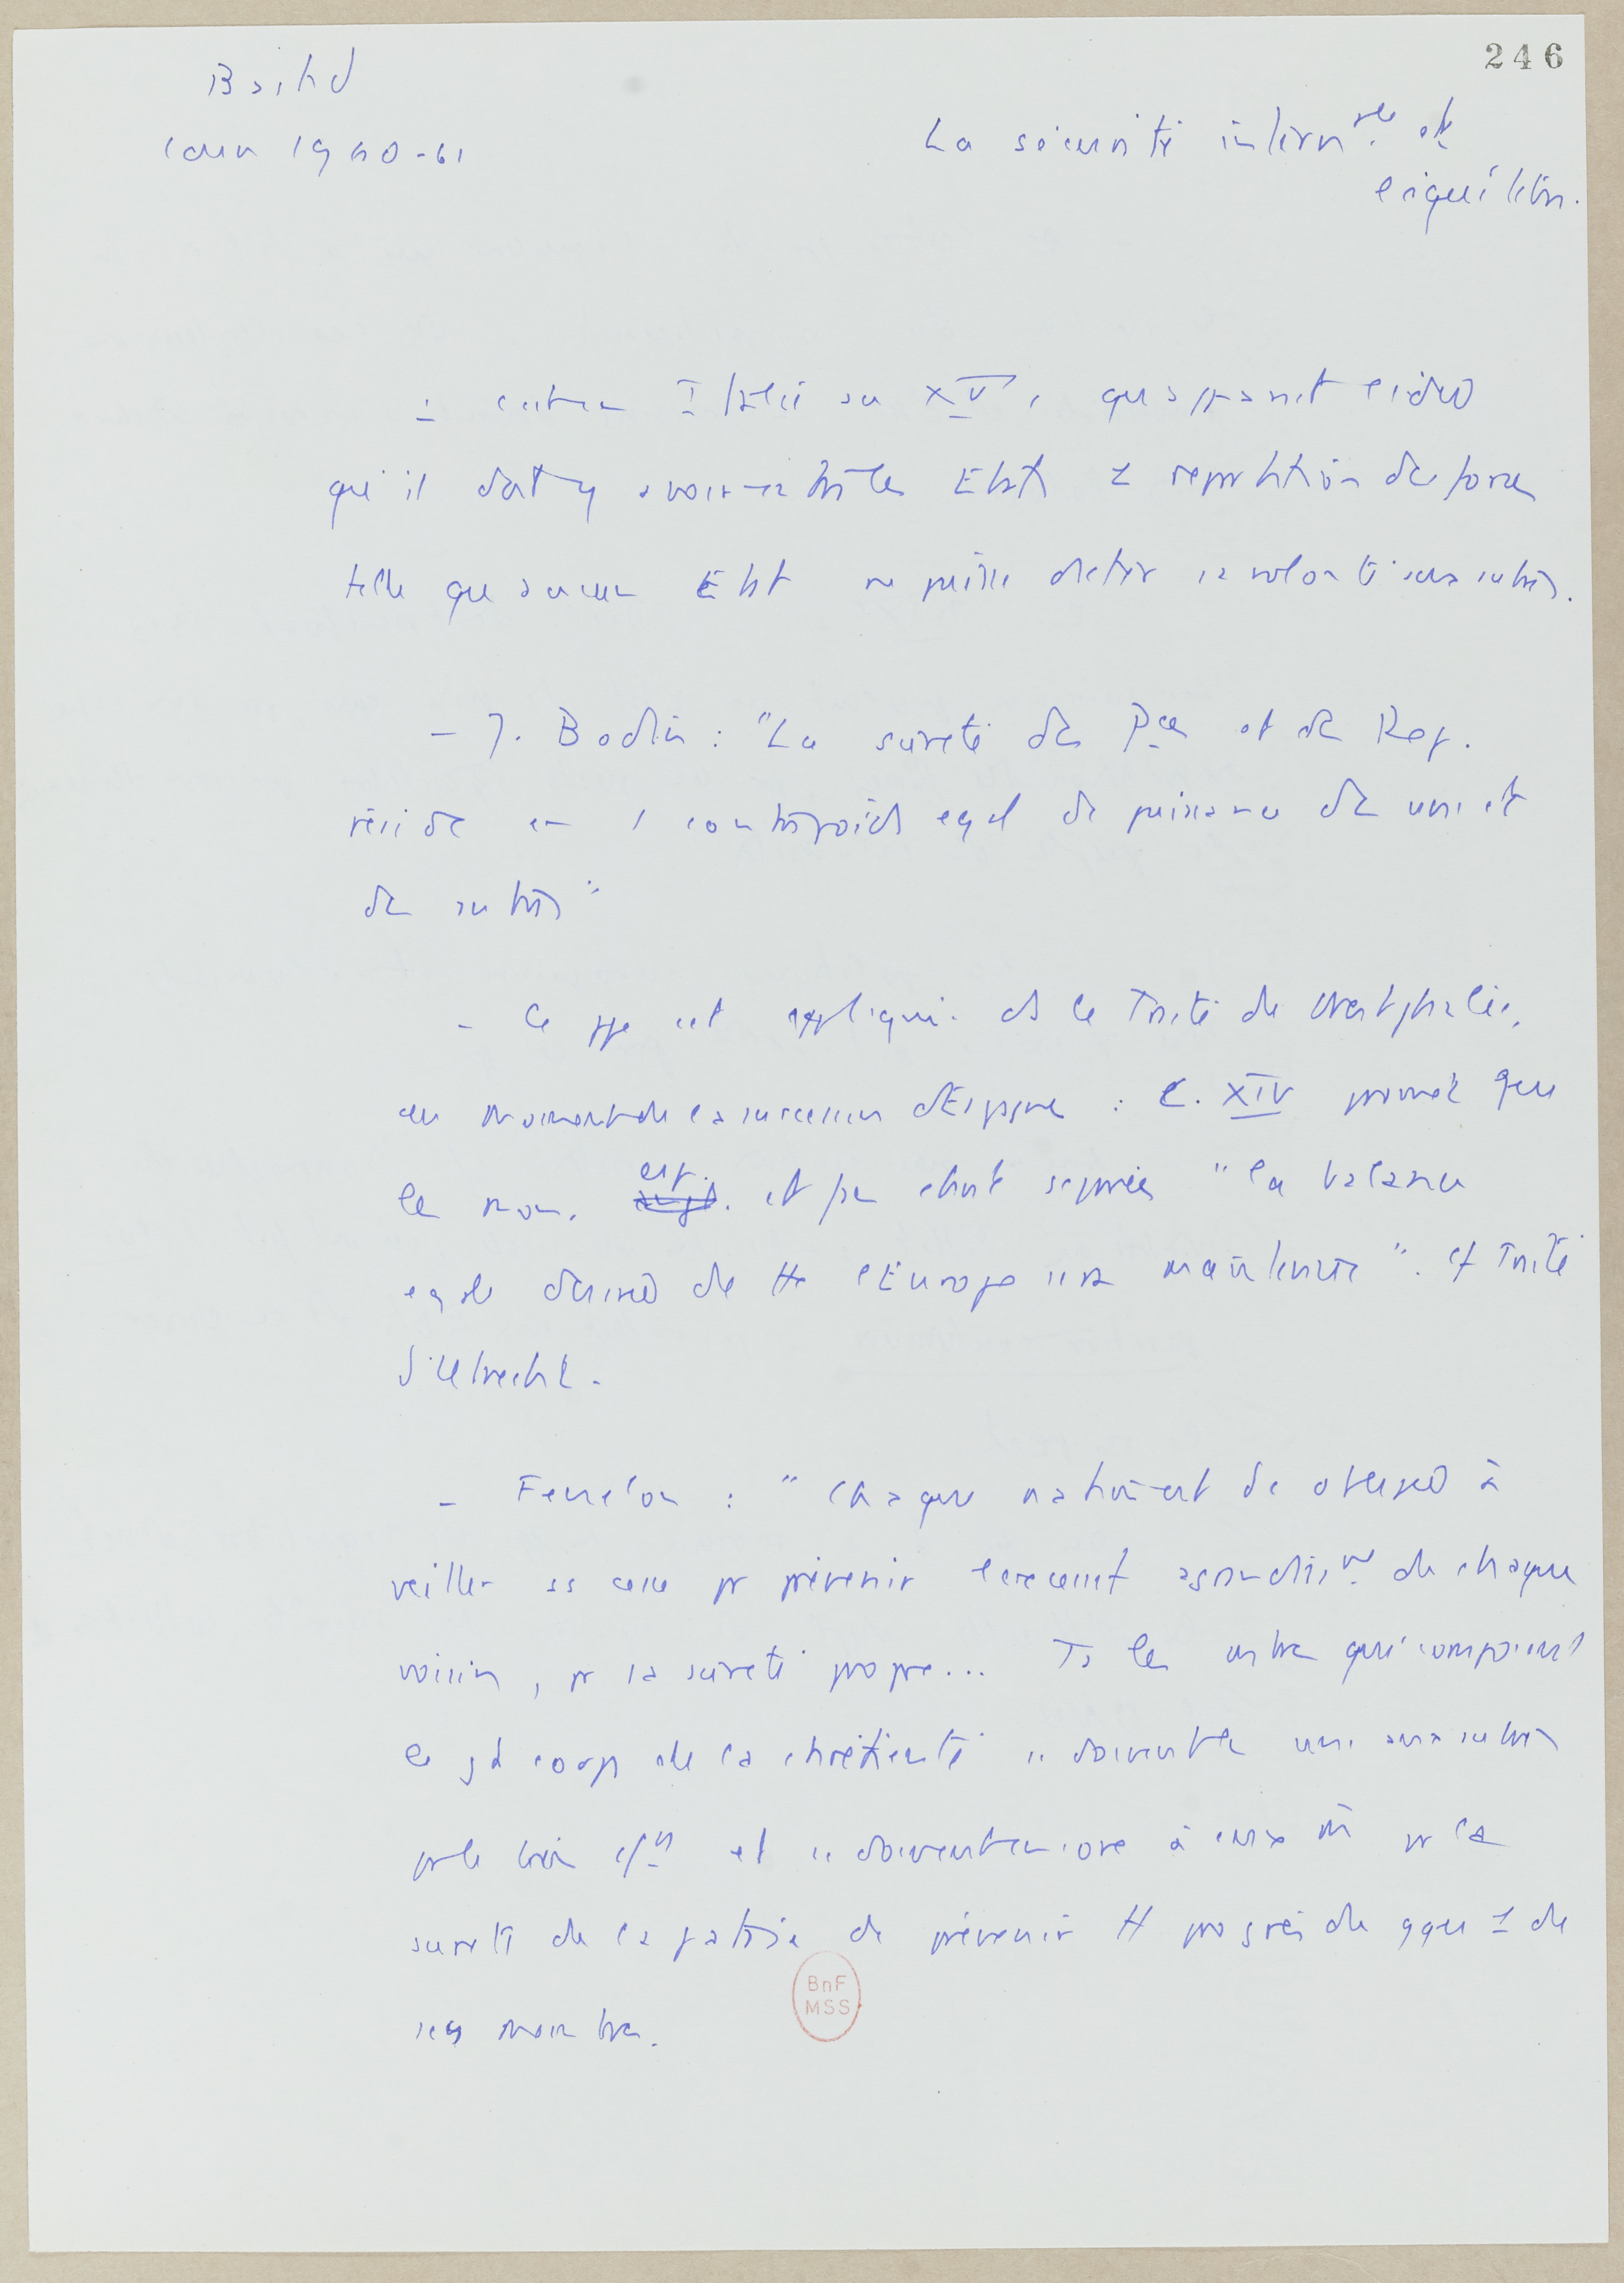 246
Bastid
cours 1960-61
La sécurité intern.ale et
l'équilibre.
- c'est en Italie au XVe, qu'apparaît l'idée
qu'il doit y avoir entre les Etats 1 répartition des forces
telle qu'aucun Etat ne puisse dicter sa volonté aux autres.
- J. Bodin : "La sureté des Pces et des Rep.
réside en 1 contrepoids egal de puissance des uns et
des autres"
- Ce ppe est appliqué ds le Traité de Westphalie,
au moment de la succession d'Espagne : L. XIV promet que
les mon. esp. et fr. étant séparées "la balance
egale désirée de tte l'Europe sera maintenue". cf Traité
d'Utrecht.
- Fenelon : "Chaque nation est de obligée à
veiller ss cesse pr prévenir l'excessif agrandissmt de chaque
voisin, pr sa sureté propre... Ts les qui composent
le gd corps de la chrétienté se doivent les uns aux autres
pr le bien et se doivent encore à eux m pr la
sureté de la patrie de prévenir tt progrès de qque 1 de
ses membres.
BnF
MSS